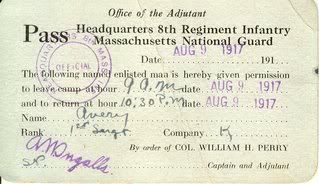 Office of the Adjutant
Pass Headquarters 8th Regiment Infantry
Massachusetts National Guard
Date AUG 9 1917 191
OFFICIAL
The following named enlisted man is hereby given permission
to leave camp at hour 9 A.M. date AUG 9 1917
and to return at hour 10:30 P.M date AUG 9 1917
Name Avery
Rank 1st Sergt Company K
By order of COL. WILLIAM H. PERRY
Captain and Adjutant